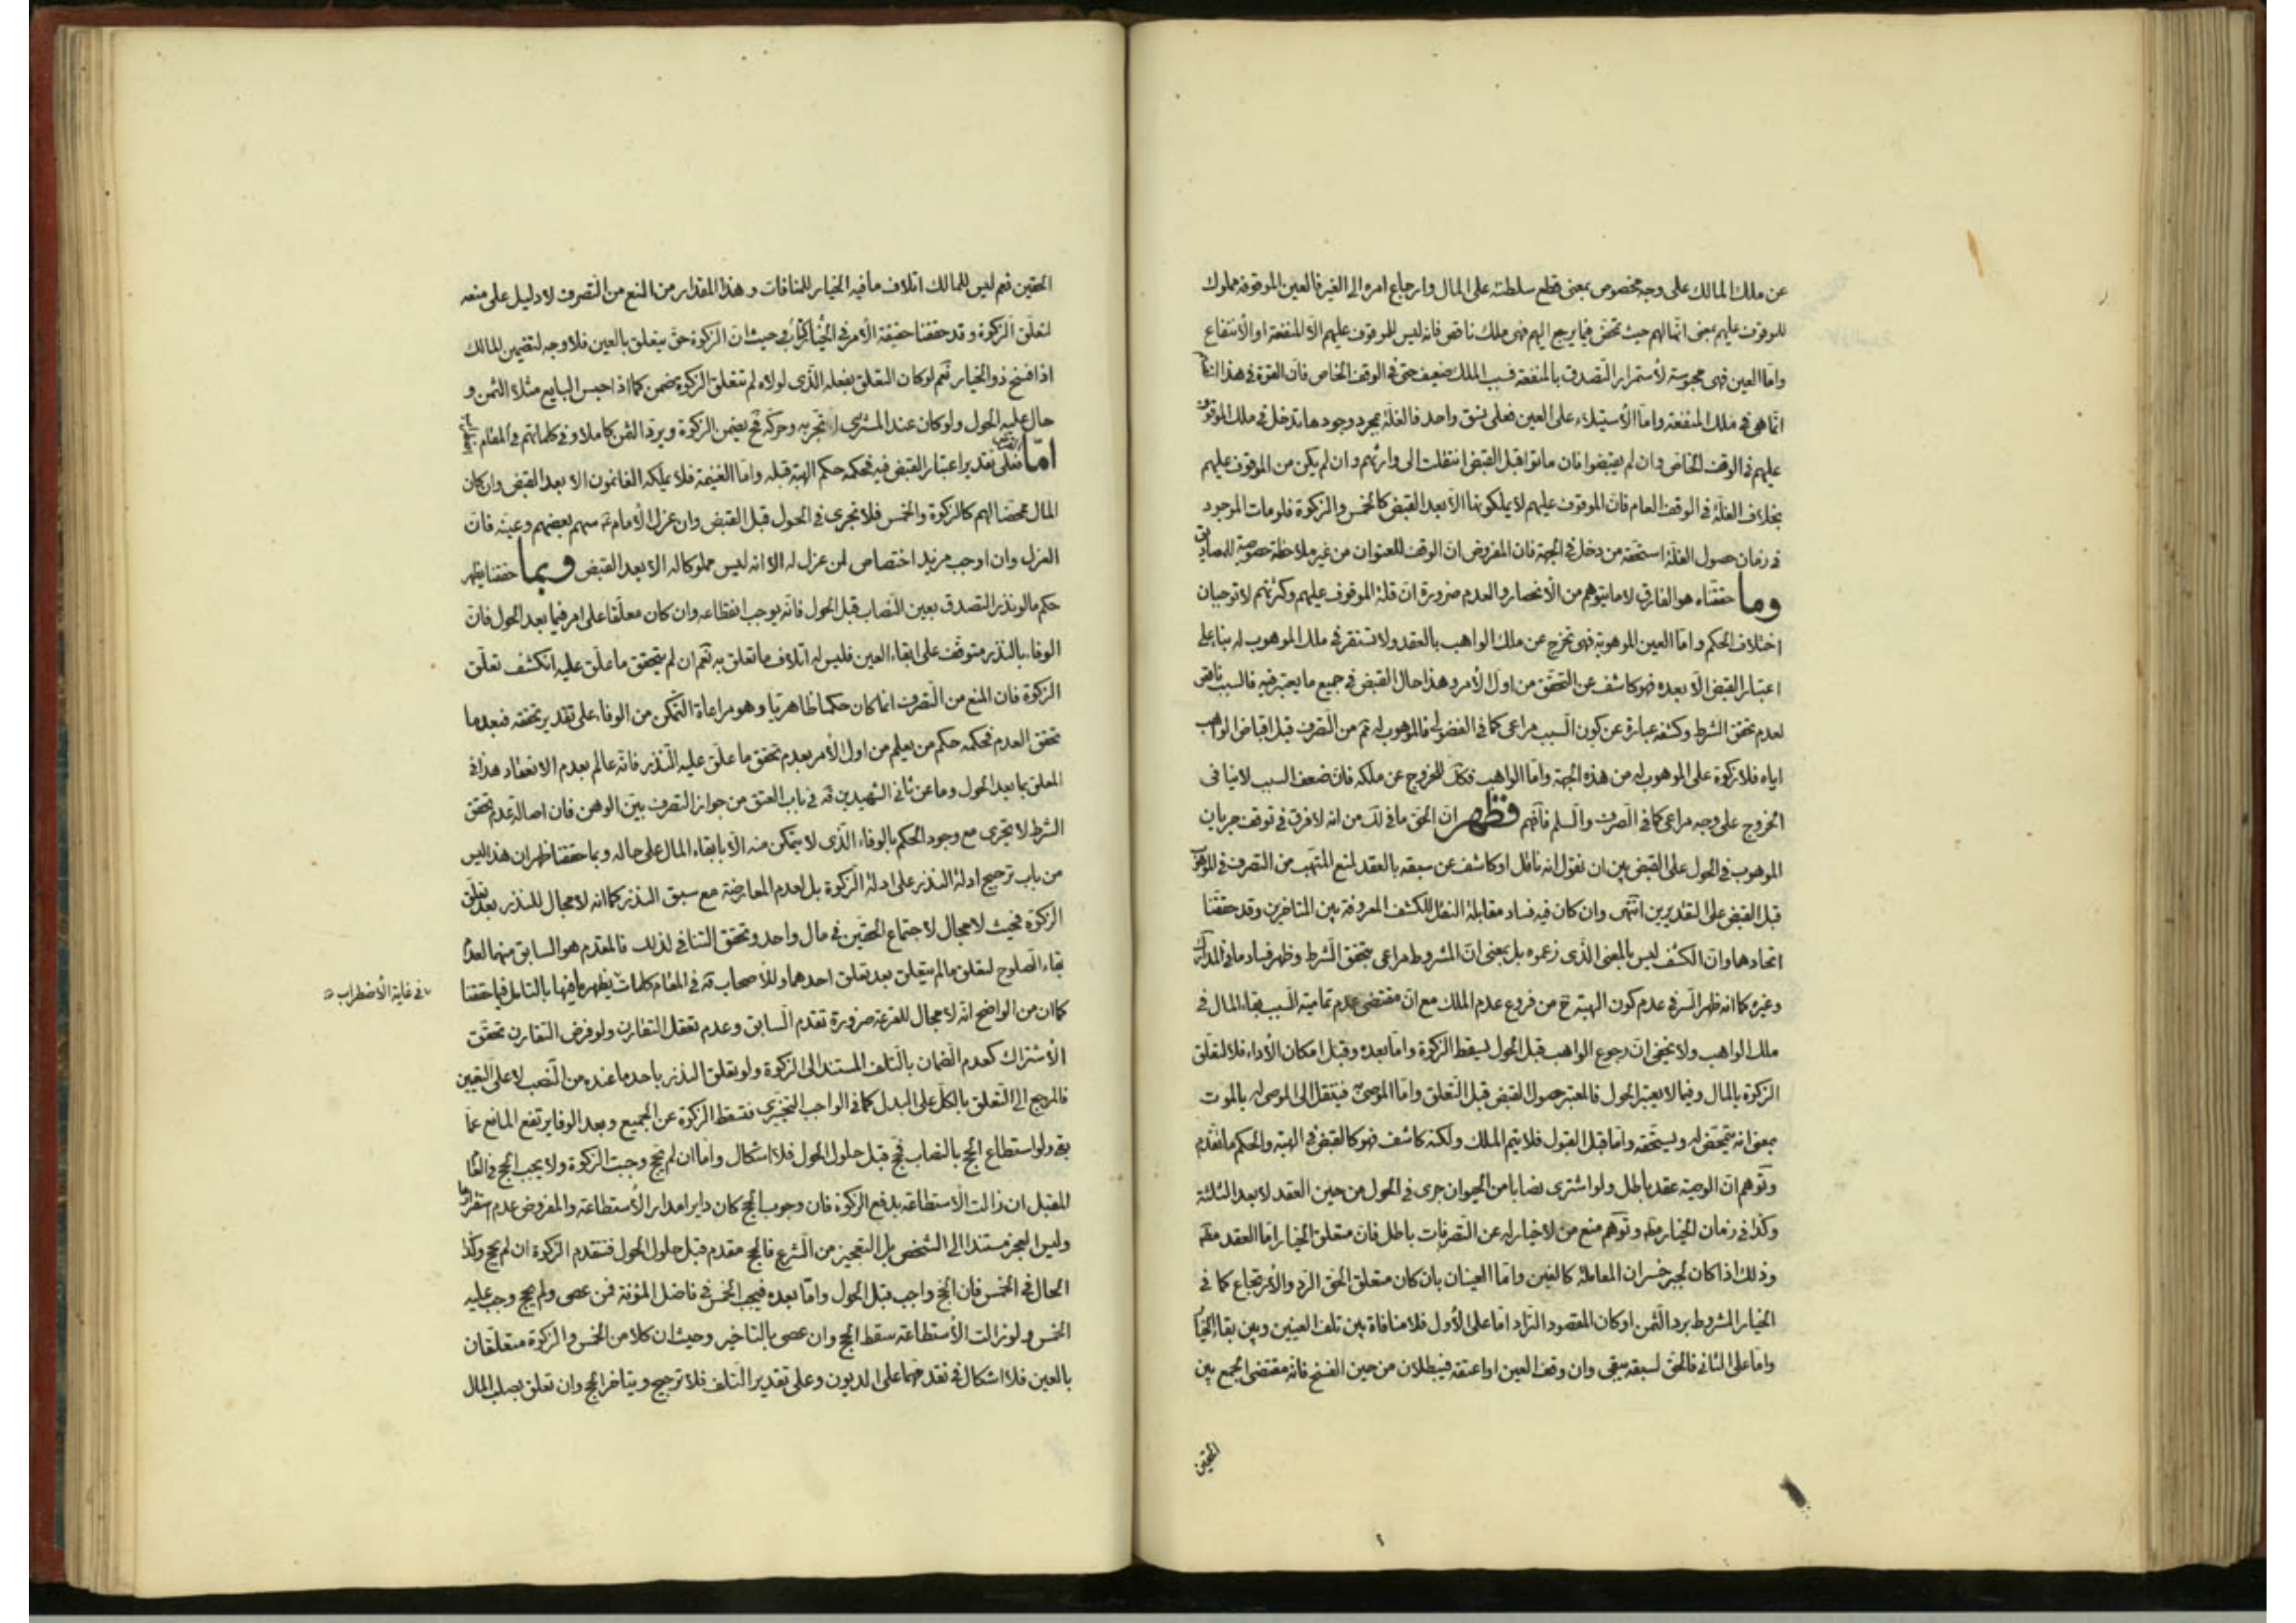 عن ملك المالك على وجه مخصوص بمعنى قطع سلطنته على المال وارجاع امره الى الغير فالعين الموقوفة مملوك
للموقوف عليهم بمعنى انها لهم حيث تمحض فيما يرجع اليهم فهى ملك ناقص فانه ليس للموقوف عليهم الا المنفعة او الانتفاع
واما العين فهى محبوسة لاستمرار التصدق بالمنفعة فسبب الملك ضعيف حتى فى الوقف الخاص فان القوة فى هذا
انما هى فى ملك المنفعة واما الاستيلاء على العين فعلى نسق واحد فالغلة بمجرد وجودها تدخل فى ملك الموقوف
عليهم فى الوقف الخاص وان لم يقبضوا فان ماتوا قبل القبض انتقلت الى وارثهم وان لم يكن من الموقوف عليهم
بخلاف الغلة فى الوقف العام فان الموقوف عليهم لا يملكونها الا بعد القبض كالخمس والزكوة فلو مات الموجود
فى زمان حصول الغلة استحقه من دخل فى الجهة فان المفروض ان الوقف للعنوان من غير ملاحظة خصوصية للمصاديق
وما حققناه هو الفارق لا ما يتوهم من الانحصار والعدم ضرورة ان قلة الموقوف عليهم وكثرتهم لا توجبان
اختلاف الحكم واما العين الموهوبة فهى تخرج عن ملك الواهب بالعقد ولا تستقر فى ملك الموهوب له بناء على
اعتبار القبض الا بعده فهو كاشف عن التحقق من اول الامر وهذا حال القبض فى جميع ما يعتبر فيه فالسبب ناقص
لعدم تحقق الشرط وكشفه عبارة عن كون السبب مراعى كما فى الفضولى فالموهوب له من التصرف قبل اقباض الواهب
اياه فلا زكوة على الموهوب له من هذه الجهة واما الواهب فكك للخروج عن ملكه فان ضعف السبب لا ينافى
الخروج على وجه مراعى كما فى الصرف والسلم فافهم فظهر ان الحق ما فى لك من انه لا فرق فى توقف جريان
الموهوب فى الحول على القبض بين ان نقول انه ناقل او كاشف عن سبقه بالعقد لمنع المتهب من التصرف فى الموهوب
قبل القبض على التقديرين انتهى وان كان فيه فساد مقابلة النقل للكشف المعروفة بين المتاخرين وقد حققنا
اتحادهما وان الكشف ليس بالمعنى الذى زعموه بل بمعنى ان المشروط مراعى بتحقق الشرط وظهر فساد ما فى المدارك
وغيره كما انه ظهر السر فى عدم كون الهبة ح من فروع عدم الملك مع ان مقتضى عدم تمامية السبب بقاء المال فى
ملك الواهب ولا يخفى ان رجوع الواهب قبل الحول يسقط الزكوة واما بعده وقبل امكان الاداء فلا لتعلق
الزكوة بالمال وفيما لا يعتبر الحول فالمعتبر حصول القبض قبل التعلق واما الموصى به فينتقل الى الموصى له بالموت
بمعنى انه يتمحض له ويستحقه واما قبل القبول فلا يتم الملك ولكنه كاشف فهو كالقبض فى الهبة والحكم ما تقدم
وتوهم ان الوصية عقد باطل ولو اشترى نصابا من الحيوان جرى فى الحول من حين العقد لا بعد الثلثة
وكذا فى زمان الخيار مطلقا وتوهم منع من لا خيار له عن التصرفات باطل فان متعلق الخيار اما العقد
وذلك اذا كان لجبر خسران المعاملة كالغبن واما العينان بان كان متعلق الحق الرد والاسترجاع كما فى
الخيار المشروط برد الثمن او كان المقصود التراد اما على الاول فلا منافاة بين تلف العينين وبين بقاء الخيار
واما على الثانى فالحق لسبقه يبقى وان وقف العين او اعتقه فيبطلان من حين الفسخ فانه مقتضى الجمع بين
الحقين
الحقين فهم ليس للمالك اتلاف ما فيه الخيار للمنافات وهذا المقدار من المنع من التصرف لا دليل على منعه
لتعلق الزكوة وقد حققنا حقيقة الامر فى الخيارات وحيث ان الزكوة حق يتعلق بالعين فلا وجه لتضمين المالك
اذا فسخ ذو الخيار نعم لو كان التعلق بفعله الذى لولاه لم تتعلق الزكوة يضمن كما اذا حبس البايع مثلا الثمن و
حال عليه الحول ولو كان عند المشترى لا تجر به وحركه فح يضمن الزكوة ويرد الثمن كاملا وفى كلماتهم فى المقام
اما فعلى تقدير اعتبار القبض فيه فحكمه حكم الهبة قبله واما الغنيمة فلا يملكه الغانمون الا بعد القبض وان كان
المال محضا لهم كالزكوة والخمس فلا تجرى فى الحول قبل القبض وان عزل الامام سهم بعضهم وعينه فان
العزل وان اوجب مزيد اختصاص لمن عزل له الا انه ليس مملوكا له الا بعد القبض وبما حققنا يظهر
حكم ما لو نذر التصدق بعين النصاب قبل الحول فانه يوجب انقطاعه وان كان معلقا على امر فيما بعد الحول فان
الوفاء بالنذر متوقف على ابقاء العين فليس له اتلاف ما تعلق به نعم ان لم يتحقق ما علق عليه انكشف تعلق
الزكوة فان المنع من التصرف انما كان حكما ظاهريا وهو مراعاة التمكن من الوفاء على تقدير تحققه فبعد ما
تحقق العدم فحكمه حكم من يعلم من اول الامر بعدم تحقق ما علق عليه النذر فانه عالم بعدم الانعقاد هذا فى
المعلق بما بعد الحول وما عن ثانى الشهيدين قه فى باب العتق من جواز التصرف بين الوهن فان اصالة عدم تحقق
الشرط لا تجرى مع وجود الحكم بالوفاء الذى لا يتمكن منه الا بابقاء المال على حاله وبما حققنا ظهر ان هذا ليس
من باب ترجيح ادلة النذر على ادلة الزكوة بل لعدم المعارضة مع سبق النذر كما انه لا مجال للنذر بعد تعلق
الزكوة فحيث لا مجال لاجتماع الحقين فى مال واحد وتحقق التنافى لذلك فالمقدم هو السابق منهما لعدم
بقاء الصلوح لتعلق ما لم يتعلق بعد تعلق احدهما وللاصحاب قه فى المقام كلمات يظهر ما فيها بالتامل فيما حققنا
فى غاية الاضطراب
كما ان من الواضح انه لا مجال للقرعة ضرورة تقدم السابق وعدم تعقل التقارن ولو فرض التقارن تحقق
الاشتراك كعدم الضمان بالتلف المستند الى الزكوة ولو تعلق النذر باحد ما عنده من النصب لا على التعيين
فالمرجع الى التعلق بالكل على البدل كما فى الواجب التخييرى فتسقط الزكوة عن الجميع وبعد الوفاء يرتفع المانع عما
بقى ولو استطاع الحج بالنصاب فحج قبل حلول الحول فلا اشكال واما ان لم يحج وجبت الزكوة ولا يجب الحج فى العام
المقبل ان زالت الاستطاعة بدفع الزكوة فان وجوب الحج كان دايرا مدار الاستطاعة والمفروض عدم استقرارها
وليس العجز مستندا الى الشخص بل التعجيز من الشرع فالحج مقدم قبل حلول الحول فتتقدم الزكوة ان لم يحج وكذا
الحال فى الخمس فان الحج واجب قبل الحول واما بعده فيجب الخمس فى فاضل المؤنة فمن عصى ولم يحج وجب عليه
الخمس ولو زالت الاستطاعة سقط الحج وان عصى بالتاخير وحيث ان كلا من الخمس والزكوة متعلقان
بالعين فلا اشكال فى تقدمهما على الديون وعلى تقدير التلف فلا ترجيح ويتاخر الحج وان تعلق بصلب المال